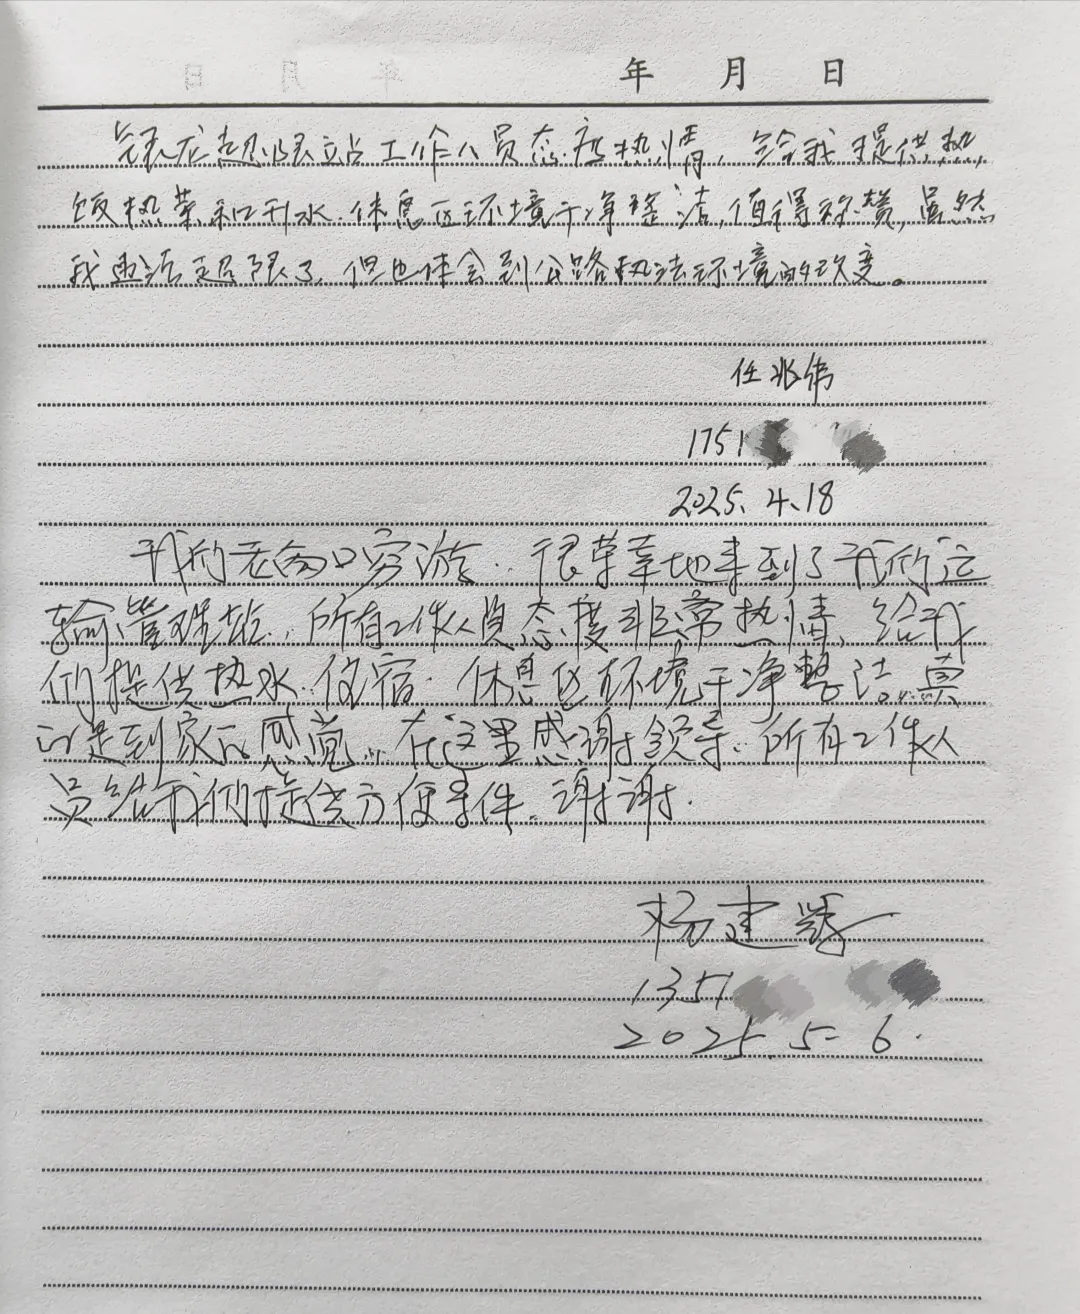 年 月 日
龙超限站工作人员态度热情，给我提供热
饭热菜和开水.休息区环境干净整洁,值得称赞,虽然
我违法超限了，但也体会到公路执法环境的改变。
任兆伟
1751
2025.4.18
我们老两口穷游..很荣幸地来到了我们运
输管理站,所有工作人员态度非常热情,给我
们提供热水.住宿.休息区环境干净整洁.真
的是到家的感觉..在这里感谢领导.所有工作人
员给我们提供方便条件.谢谢.
杨建
1351
2025.5-6.